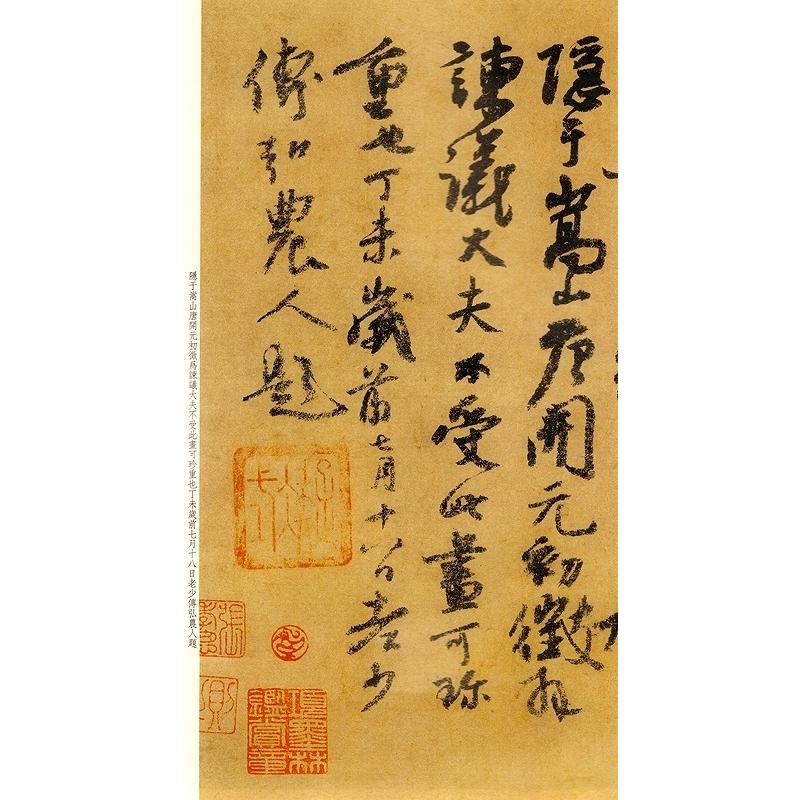 隱于嵩山唐開元初徵爲
諫議大夫不受此畫可珍
重也丁未歲前七月十八日老少
傅弘農人題
項墨林
鑑賞章
隱于嵩山唐開元初徵爲諫議大夫不受此畫可珍重也丁未歲前七月十八日老少傅弘農人題